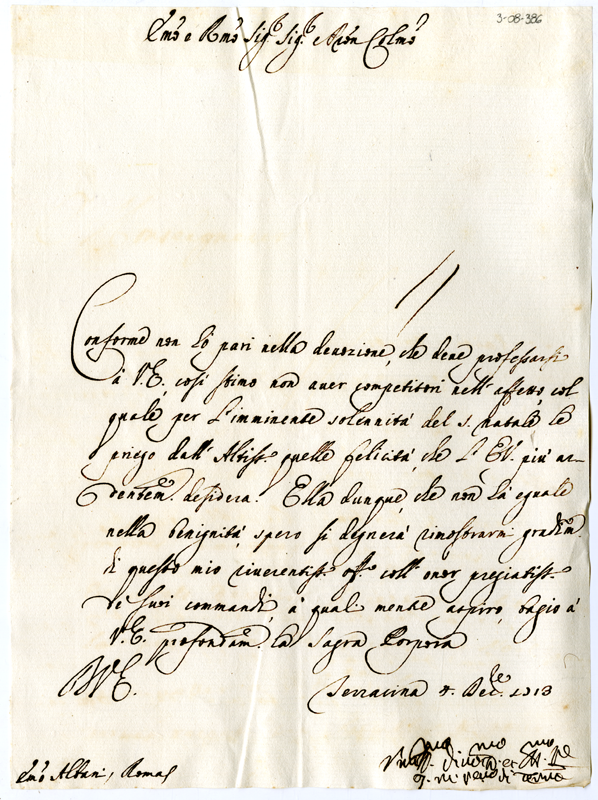 3-08-386
Emo e Rmo Sig.r Sig.r e Pron Colmo
Conforme non hò pari nella devozione, che deve professarsi
à V.E. così stimo non aver competitori nell' affetto, col
quale per l'imminente solennità del s. natale le
priego dall' Altiss.o quelle felicità, che l' E.V. più ar-
dentem.te desidera. Ella dunque, che non hà eguale
nella benignità, spero si degnerà rimostrarmi gradim.to
di questo mio riverentiss.o off.o coll' onor pregiatiss.o
de' suoi commandi, à qual mente aspiro, bagio à
V.E. profondam.te la Sagra Porpora
D V.E.
Terracina 4. Dec.bre 1713
Emo Albani, Roma